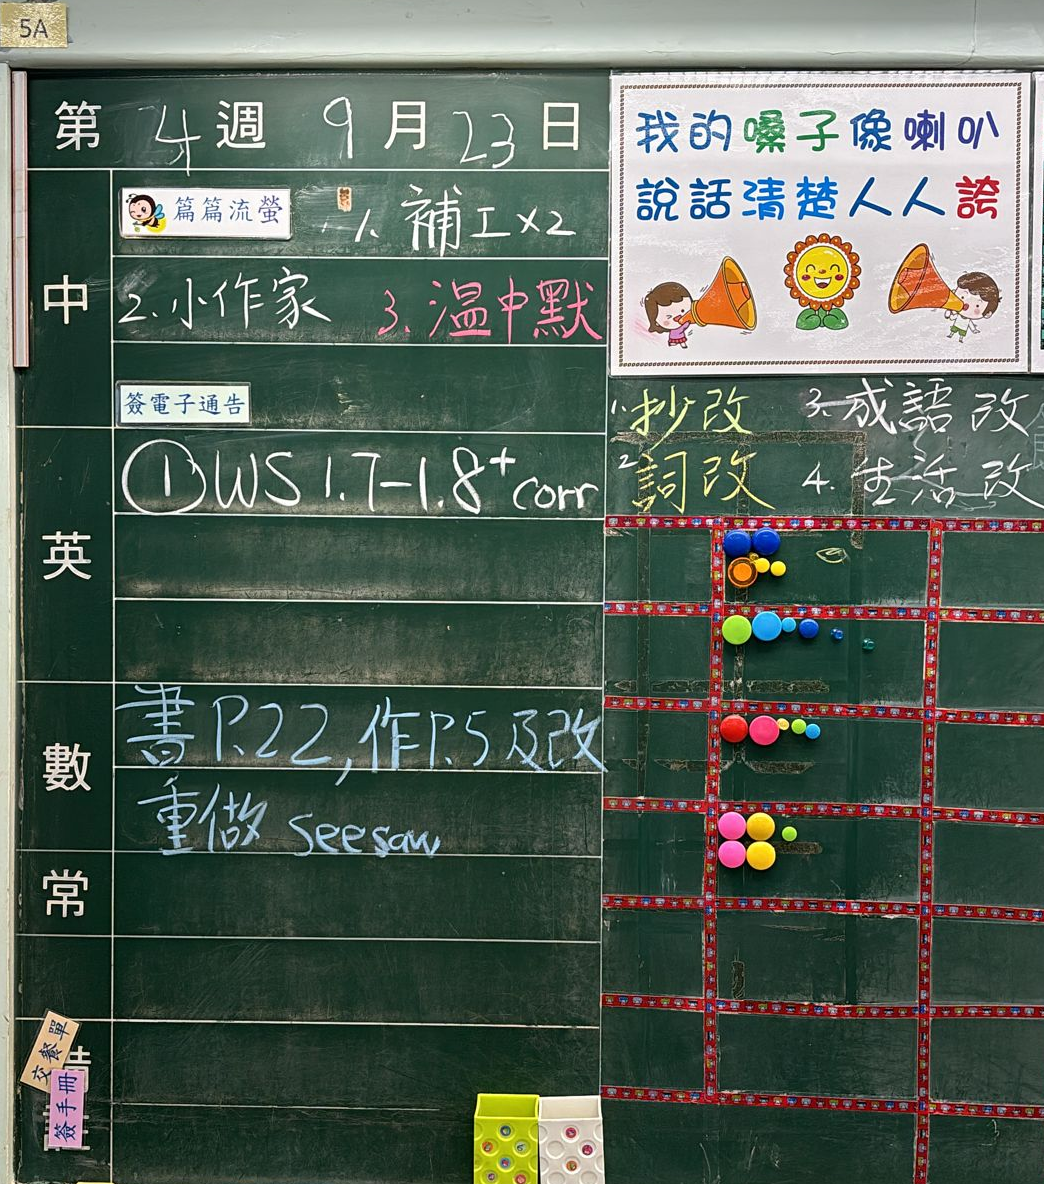 5A
第 4 週 9 月 23 日
中
篇篇流螢 1. 補工×2
2. 小作家 3. 溫中默
簽電子通告
英
① WS 1.7-1.8 + corr
數
書 P.22, 作 P.5 及改
重做 seesaw
常
交餐單
簽手冊
我的嗓子像喇叭
說話清楚人人誇
1. 抄改 3. 成語改
2. 詞改 4. 生活改